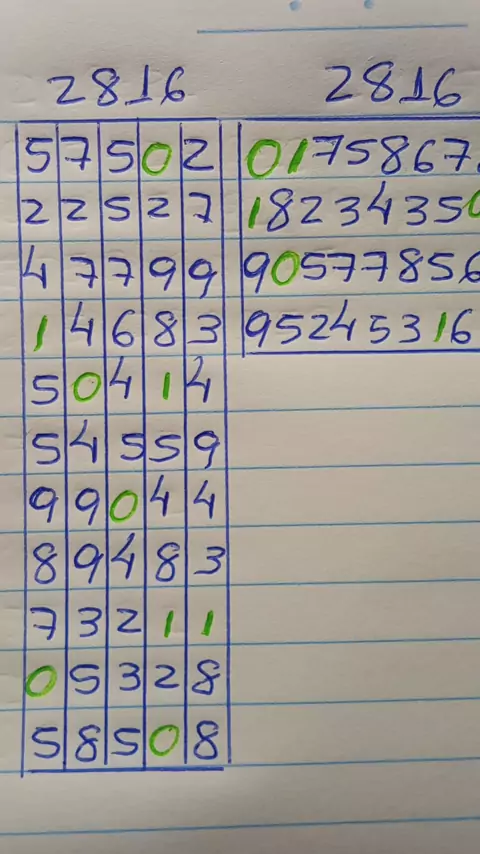 2816
57502
22527
47799
14683
50414
54559
99044
89483
73211
05328
58508
2816
0175867
18234350
90577856
95245316